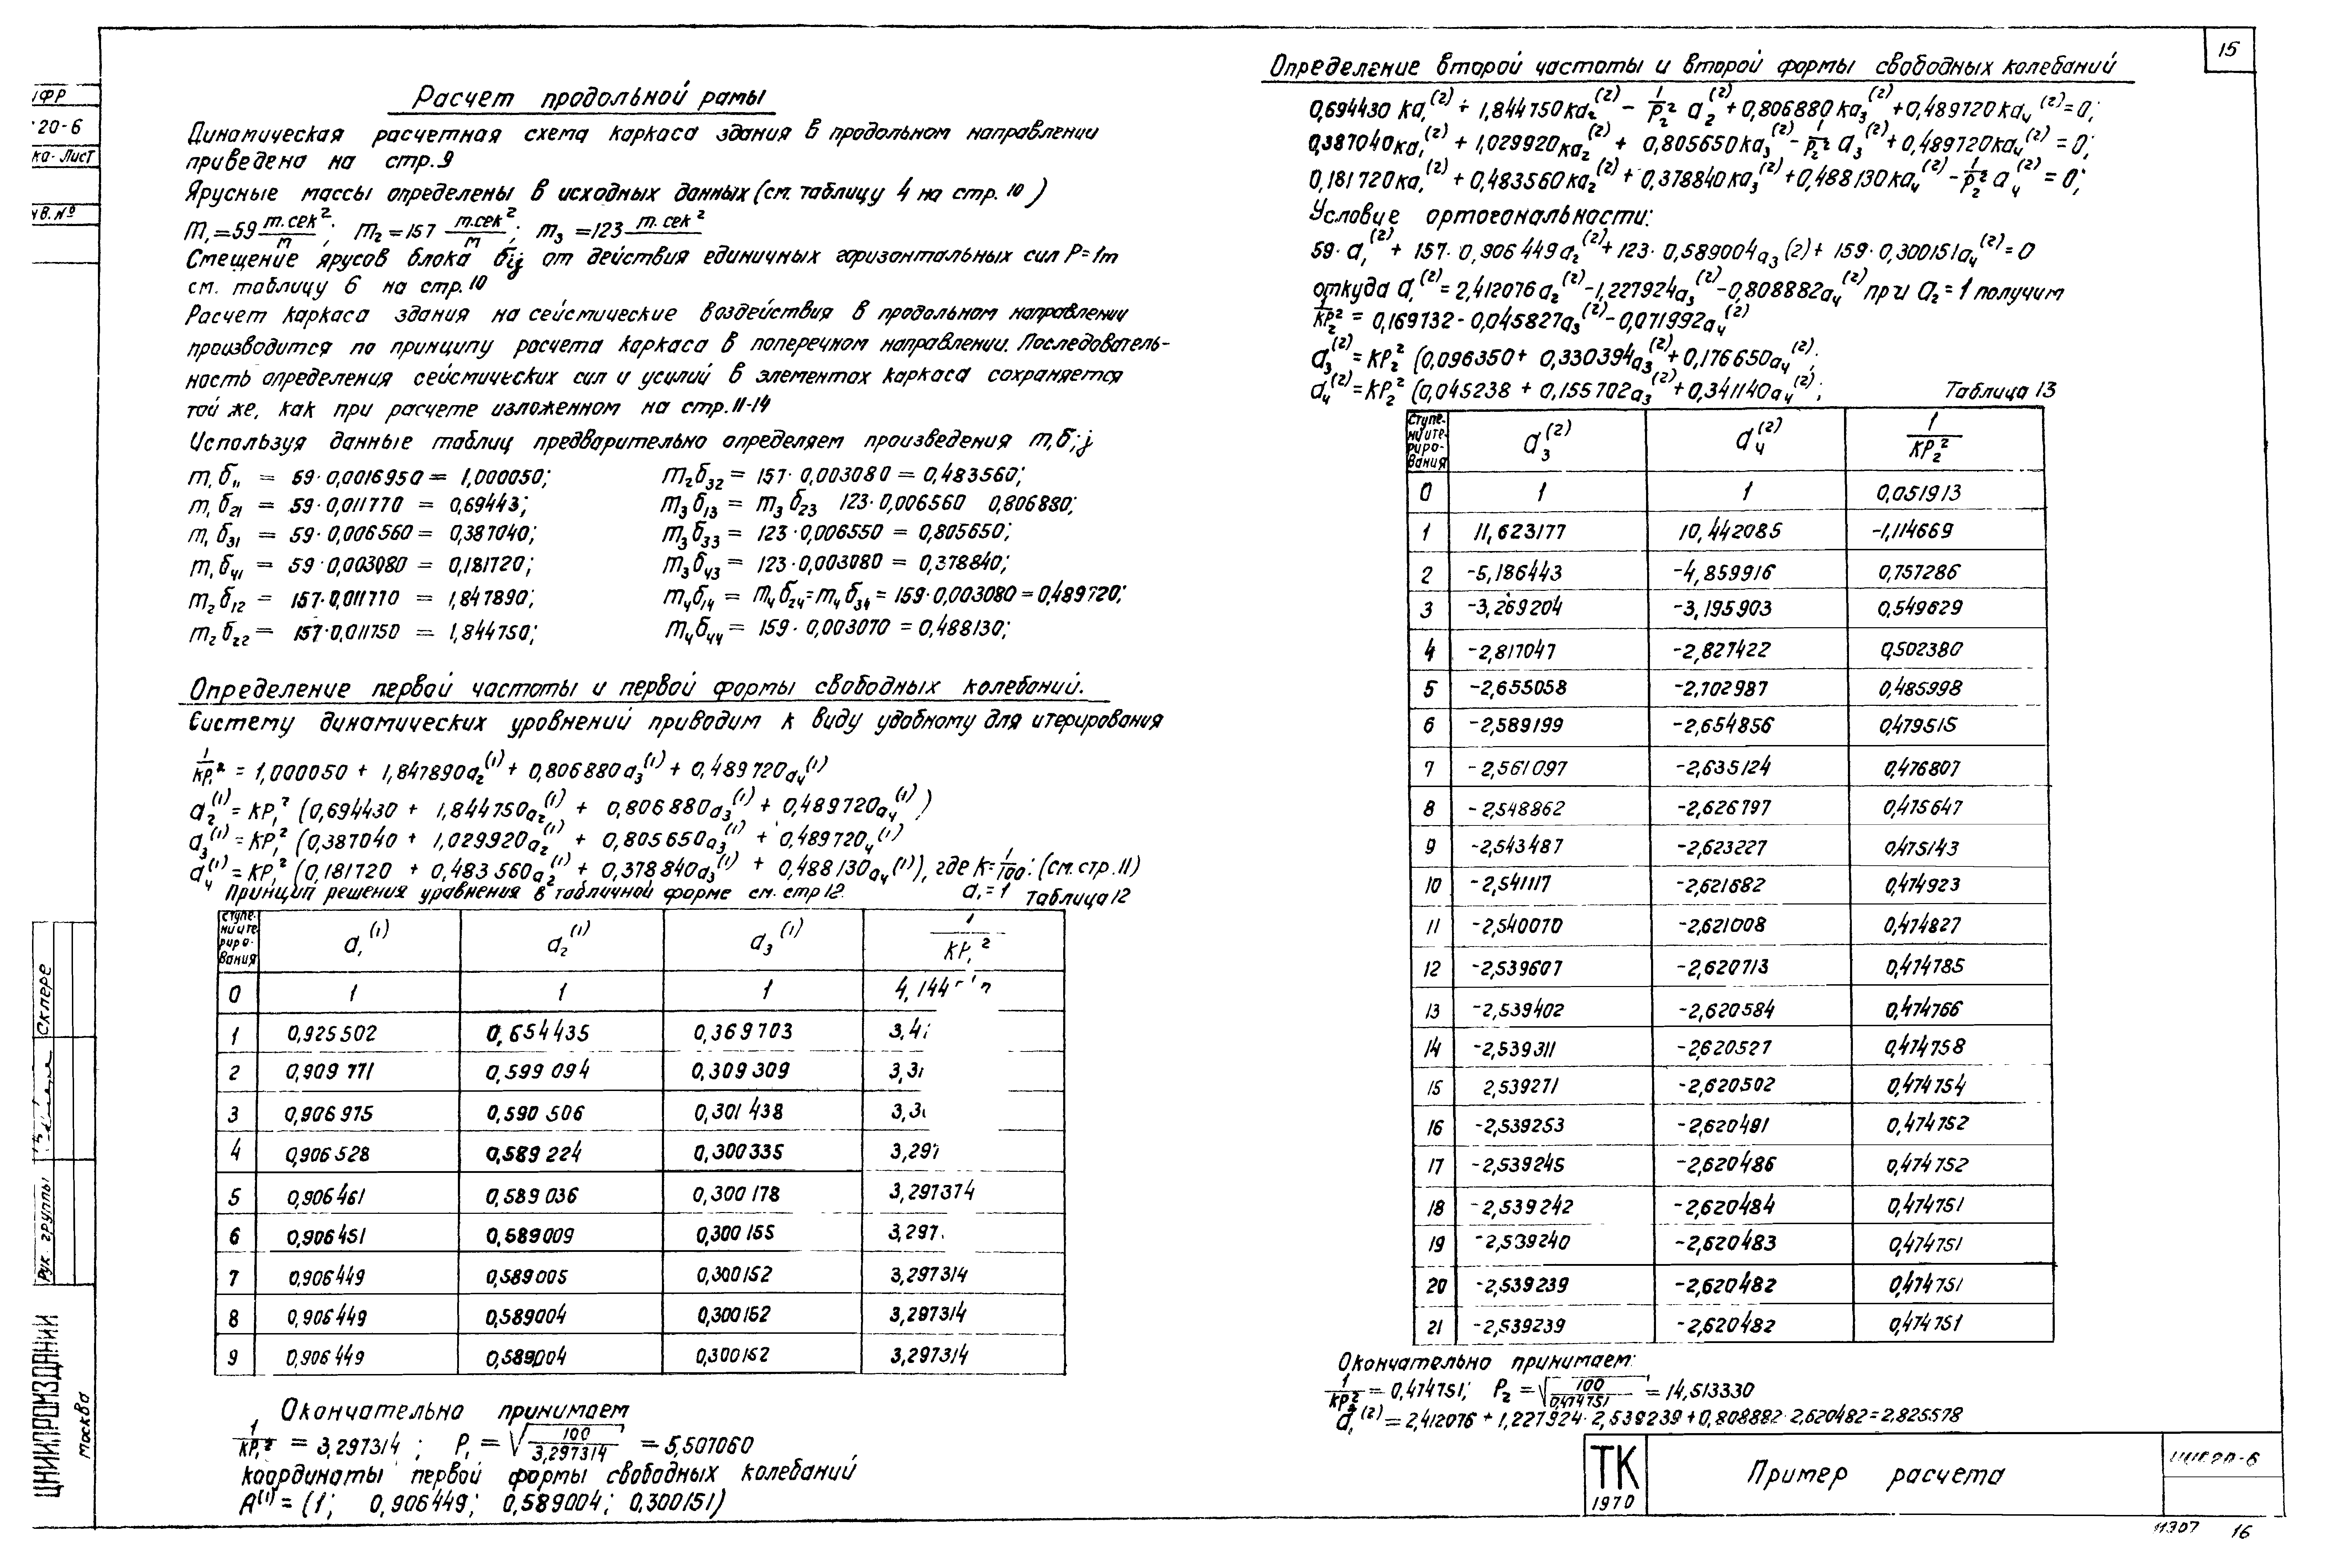 15
Расчет продольной рамы
Динамическая расчетная схема каркаса здания в продольном направлении
приведена на стр.9
Ярусные массы определены в исходных данных (см. таблицу 4 на стр. 10)
m₁=59 т.сек²/м; m₂=157 т.сек²/м; m₃=123 т.сек²
Смещение ярусов блока δij от действия единичных горизонтальных сил P=1т
см. таблицу 6 на стр.10
Расчет каркаса здания на сейсмические воздействия в продольном направлении
производится по принципу расчета каркаса в поперечном направлении. Последователь-
ность определения сейсмических сил и усилий в элементах каркаса сохраняется
той же, как при расчете изложенном на стр.11-14
Используя данные таблиц предварительно определяем произведения m₁δij
m₁δ₁₁ = 59·0,0016950 = 1,000050;
m₁δ₂₁ = 59·0,011770 = 0,69443;
m₁δ₃₁ = 59·0,006560 = 0,387040;
m₁δ₄₁ = 59·0,003080 = 0,181720;
m₂δ₁₂ = 157·0,011770 = 1,847890;
m₂δ₂₂ = 157·0,011750 = 1,844750;
m₂δ₃₂ = 157·0,003080 = 0,483560;
m₃δ₁₃ = m₃δ₂₃ 123·0,006560 0,806880;
m₃δ₃₃ = 123·0,006550 = 0,805650;
m₃δ₄₃ = 123·0,003080 = 0,378840;
m₄δ₁₄ = m₄δ₂₄ = m₄δ₃₄ = 159·0,003080 = 0,489720;
m₄δ₄₄ = 159·0,003070 = 0,488130;
Определение первой частоты и первой формы свободных колебаний.
Систему динамических уровнений приводим к виду удобному для итерирования
1/КР₁² = 1,000050 + 1,847890a₂⁽¹⁾ + 0,806880a₃⁽¹⁾ + 0,489720a₄⁽¹⁾
a₂⁽¹⁾ = КР₁² (0,694430 + 1,844750a₂⁽¹⁾ + 0,806880a₃⁽¹⁾ + 0,489720a₄⁽¹⁾)
a₃⁽¹⁾ = КР₁² (0,387040 + 1,029920a₂⁽¹⁾ + 0,805650a₃⁽¹⁾ + 0,489720₄⁽¹⁾
a₄⁽¹⁾ = КР₁² (0,181720 + 0,483560a₂⁽¹⁾ + 0,378840a₃⁽¹⁾ + 0,488130a₄⁽¹⁾), где К=1/100; (см.стр.11)
Принцип решения уравнения в табличной форме см. стр12. a₁=1 Таблица12
Ступе-ни ите-риро-вания | a₁⁽¹⁾ | a₂⁽¹⁾ | a₃⁽¹⁾ | 1/КР₁²
0 | 1 | 1 | 1 | 4,144
1 | 0,925502 | 0,654435 | 0,369703 | 3,4
2 | 0,909771 | 0,599094 | 0,309309 | 3,3
3 | 0,906975 | 0,590506 | 0,301438 | 3,3
4 | 0,906528 | 0,589224 | 0,300335 | 3,297
5 | 0,906461 | 0,589036 | 0,300178 | 3,297374
6 | 0,906451 | 0,589009 | 0,300155 | 3,297
7 | 0,906449 | 0,589005 | 0,300152 | 3,297314
8 | 0,906449 | 0,589004 | 0,300152 | 3,297314
9 | 0,906449 | 0,589004 | 0,300152 | 3,297314
Окончательно принимаем
1/КР₁² = 3,297314; P₁ = √(100/3,297314) = 5,507060
координаты первой формы свободных колебаний
A⁽¹⁾ = (1; 0,906449; 0,589004; 0,300151)
Определение второй частоты и второй формы свободных колебаний
0,694430 Кa₁⁽²⁾ + 1,844750Кa₂⁽²⁾ - 1/P₂² a₂⁽²⁾ + 0,806880Кa₃⁽²⁾ + 0,489720Кa₄⁽²⁾ = 0;
0,387040Кa₁⁽²⁾ + 1,029920Кa₂⁽²⁾ + 0,805650Кa₃⁽²⁾ - 1/P₂² a₃⁽²⁾ + 0,489720Кa₄⁽²⁾ = 0;
0,181720Кa₁⁽²⁾ + 0,483560Кa₂⁽²⁾ + 0,378840Кa₃⁽²⁾ + 0,488130Кa₄⁽²⁾ - 1/P₂² a₄⁽²⁾ = 0;
Условие ортогональности:
59·a₁⁽²⁾ + 157·0,906449a₂⁽²⁾ + 123·0,589004a₃(2) + 159·0,300151a₄⁽²⁾ = 0
откуда a₁⁽²⁾ = 2,412076a₂⁽²⁾ - 1,227924a₃⁽²⁾ - 0,808882a₄⁽²⁾ при a₂=1 получим
1/КР₂² = 0,169732 - 0,045827a₃⁽²⁾ - 0,071992a₄⁽²⁾
a₃⁽²⁾ = КР₂² (0,096350 + 0,330394a₃⁽²⁾ + 0,176650a₄⁽²⁾;
a₄⁽²⁾ = КР₂² (0,045238 + 0,155702a₃⁽²⁾ + 0,341140a₄⁽²⁾; Таблица 13
Ступе-ни ите-риро-вания | a₃⁽²⁾ | a₄⁽²⁾ | 1/КР₂²
0 | 1 | 1 | 0,051913
1 | 11,623177 | 10,442085 | -1,114669
2 | -5,186443 | -4,859916 | 0,757286
3 | -3,269204 | -3,195903 | 0,549629
4 | -2,817047 | -2,827422 | 0,502380
5 | -2,655058 | -2,702987 | 0,485998
6 | -2,589199 | -2,654856 | 0,479515
7 | -2,561097 | -2,635124 | 0,476807
8 | -2,548862 | -2,626797 | 0,475647
9 | -2,543487 | -2,623227 | 0,475143
10 | -2,541117 | -2,621682 | 0,474923
11 | -2,540070 | -2,621008 | 0,474827
12 | -2,539607 | -2,620713 | 0,474785
13 | -2,539402 | -2,620584 | 0,474766
14 | -2,539311 | -2,620527 | 0,474758
15 | 2,539271 | -2,620502 | 0,474754
16 | -2,539253 | -2,620491 | 0,474752
17 | -2,539245 | -2,620486 | 0,474752
18 | -2,539242 | -2,620484 | 0,474751
19 | -2,539240 | -2,620483 | 0,474751
20 | -2,539239 | -2,620482 | 0,474751
21 | -2,539239 | -2,620482 | 0,474751
Окончательно принимаем:
1/КР₂² = 0,474751; P₂ = √(100/0,474751) = 14,513330
a₁⁽²⁾ = 2,412076 + 1,227924·2,539239 + 0,808882·2,620482 = 2,825578
ТК
1970
Пример расчета
11307 16
ИФР
20-6
ка. Лист
Рук. группы
ЦНИИПРОМЗДАНИЙ
Москва